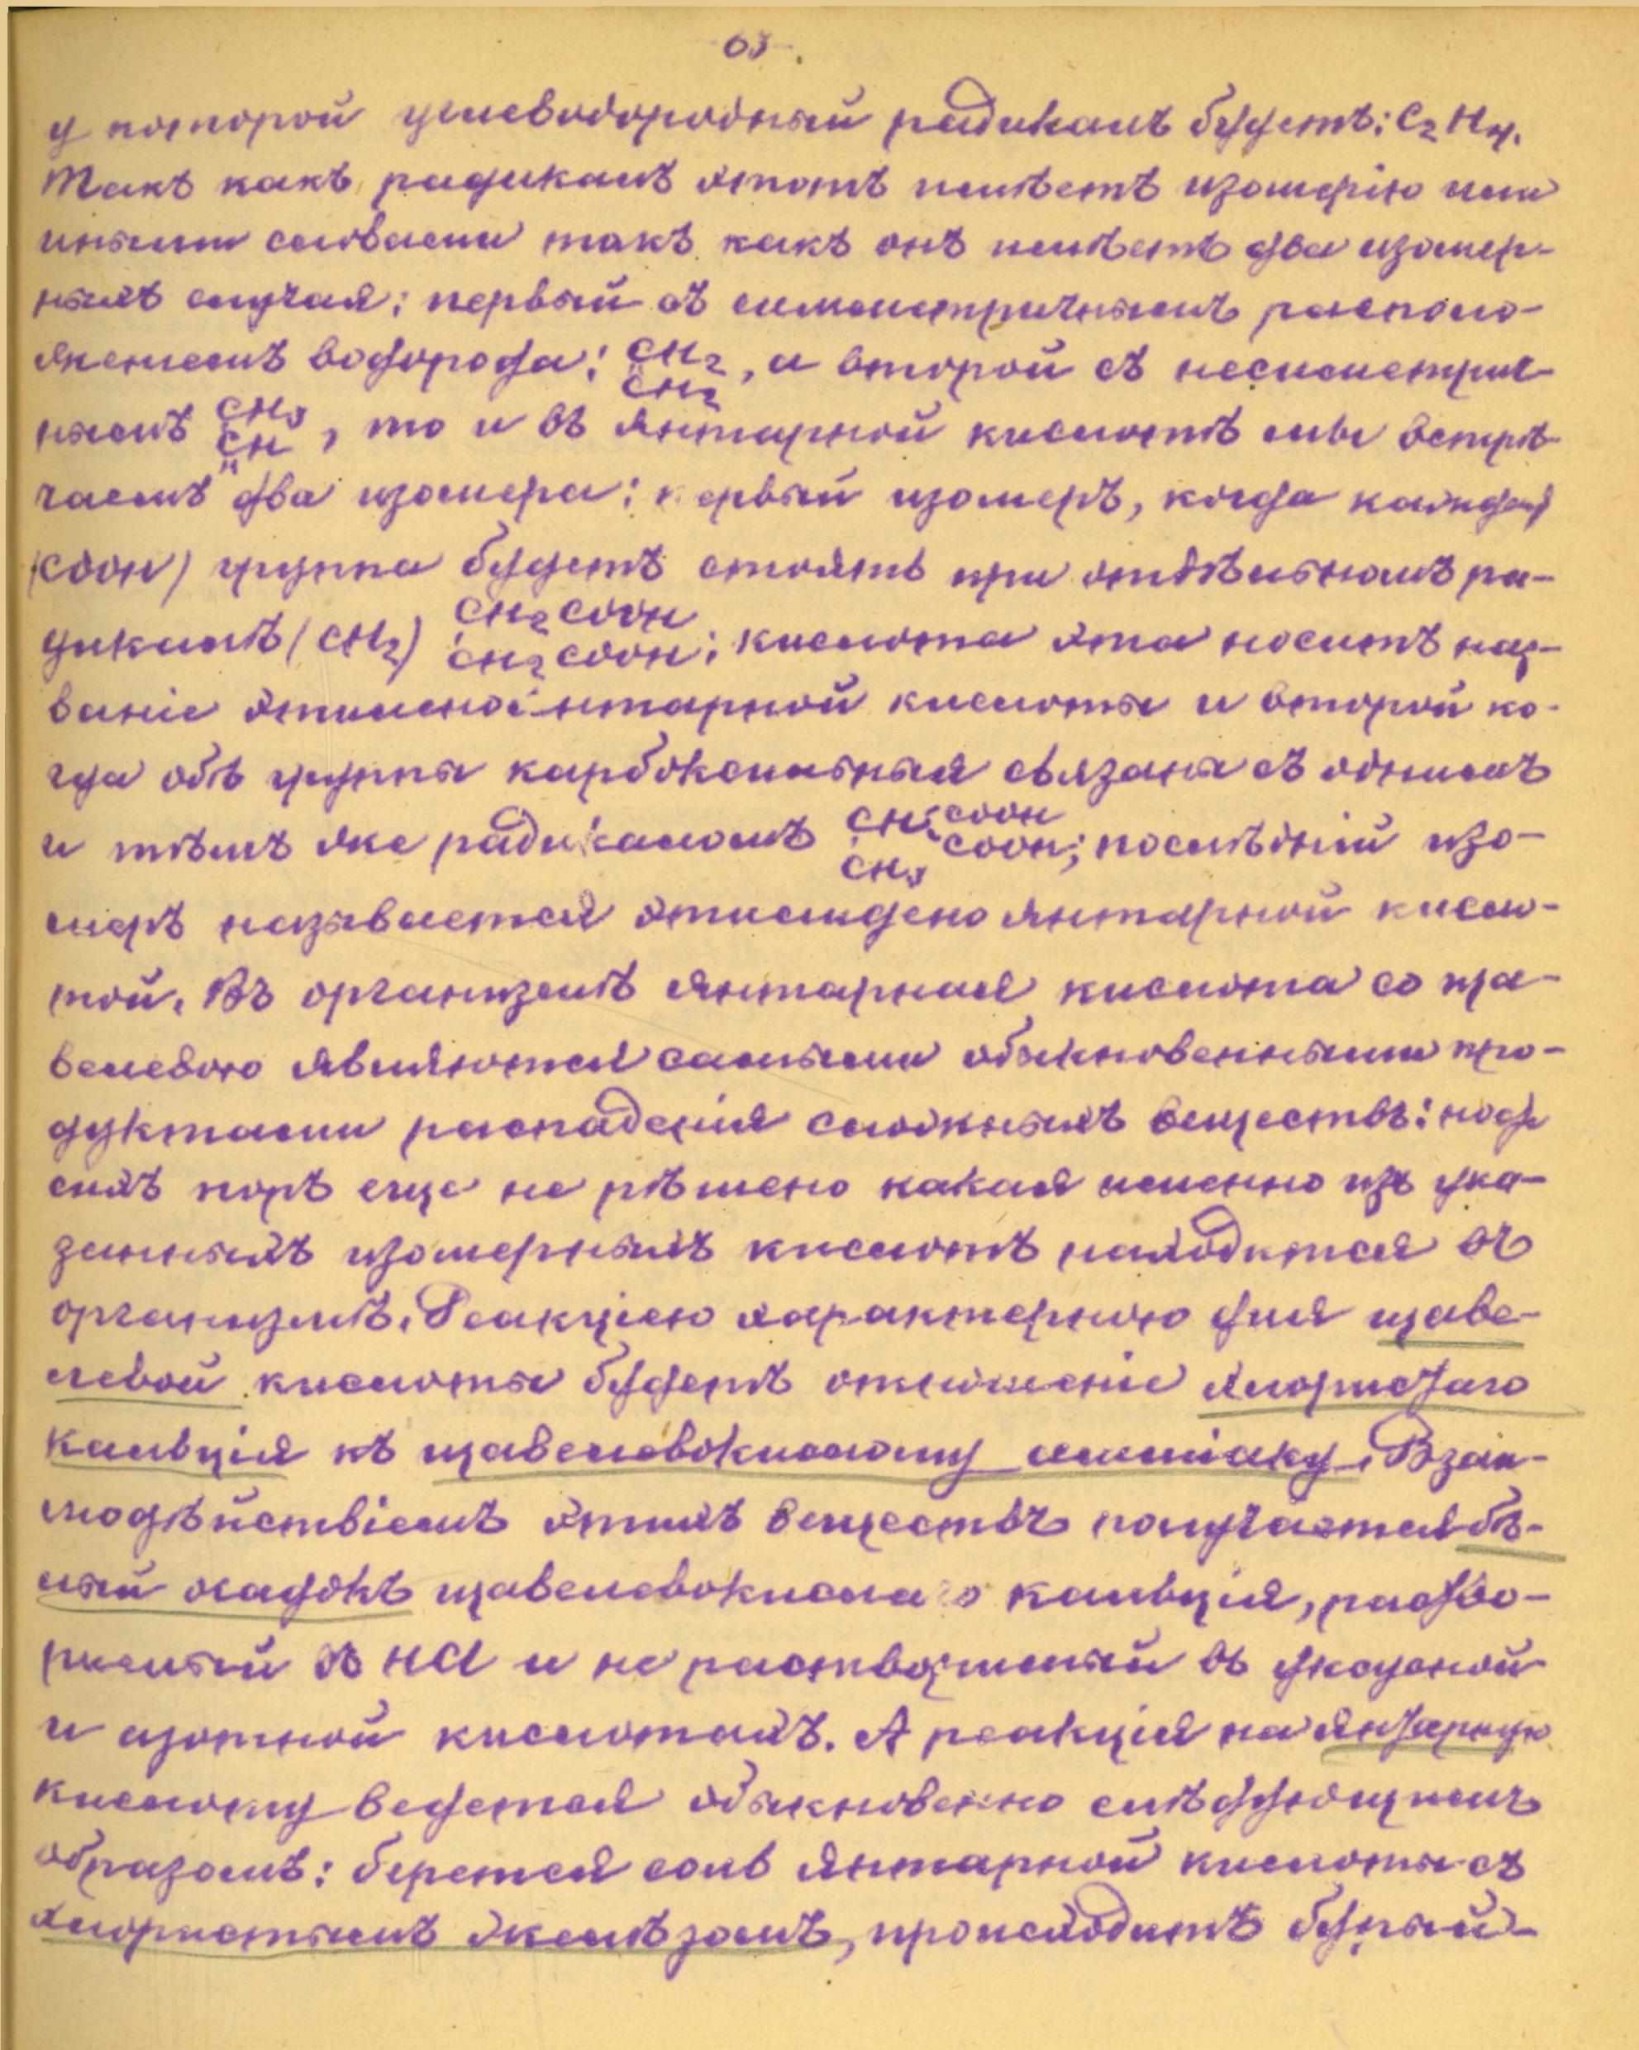 63.
у которой углеводородный радикалъ будетъ: C₂H₄.
Такъ какъ радикалъ этотъ имѣетъ изомерію или
иными словами такъ какъ онъ имѣетъ два изомер-
ныхъ случая: первый съ симметричнымъ располо-
женіемъ водорода: CH₂ CH₂, а второй съ несиметрич-
нымъ CH₃ CH, то и въ Янтарной кислотѣ мы встрѣ-
чаемъ два изомера: первый изомеръ, когда каждая
(COOH) группа будетъ стоять при отдѣльномъ ра-
дикалѣ (CH₂) CH₂COOH CH₂COOH; кислота эта носитъ наз-
ваніе этиленоянтарной кислоты и второй ко-
гда обѣ группы карбоксильныя связаны съ однимъ
и тѣмъ же радикаломъ CH COOH COOH CH₃; послѣдній изо-
меръ называется этилидено янтарной кисло-
той. Въ организмѣ Янтарная кислота со ща-
велевою являются самыми обыкновенными про-
дуктами распаденія сложныхъ веществъ: до
сихъ поръ еще не рѣшено какая именно изъ ука-
занныхъ изомерныхъ кислотъ находится въ
организмѣ. Реакціею характерною для щаве-
левой кислоты будетъ отношеніе хлористаго
кальція къ щавелевокислому амміаку. Взаи-
модѣйствіемъ этихъ веществъ получается бѣ-
лый осадокъ щавелевокислаго кальція, раство-
римый въ HCl и не растворимый въ уксусной
и азотной кислотахъ. А реакція на Янтарную
кислоту ведется обыкновенно слѣдующимъ
образомъ: берется соль Янтарной кислоты съ
хлористымъ желѣзомъ, происходитъ бурый